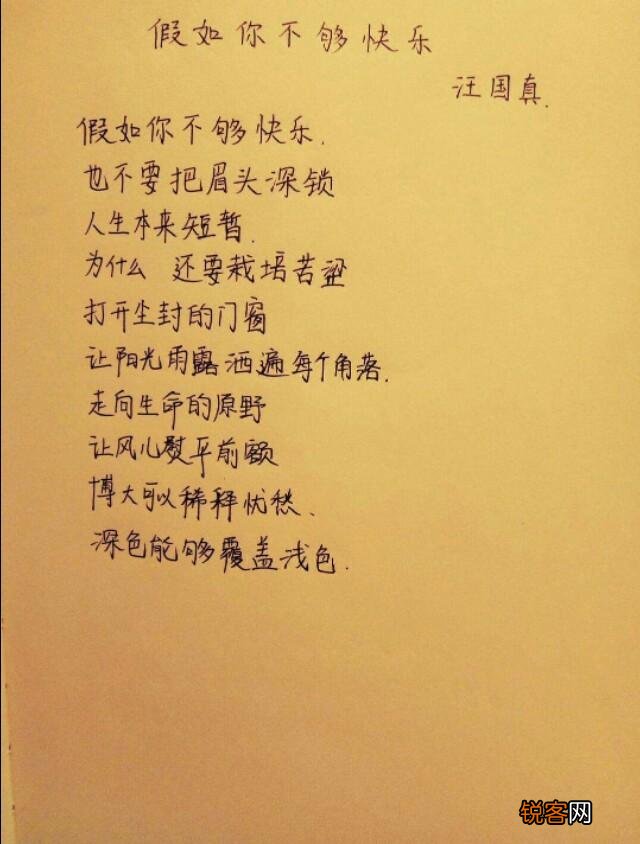 假如你不够快乐
汪国真.
假如你不够快乐.
也不要把眉头深锁
人生本来短暂.
为什么 还要栽培苦涩
打开尘封的门窗
让阳光雨露洒遍每个角落.
走向生命的原野
让风儿熨平前额
博大可以稀释忧愁、
深色能够覆盖浅色.
锐客网